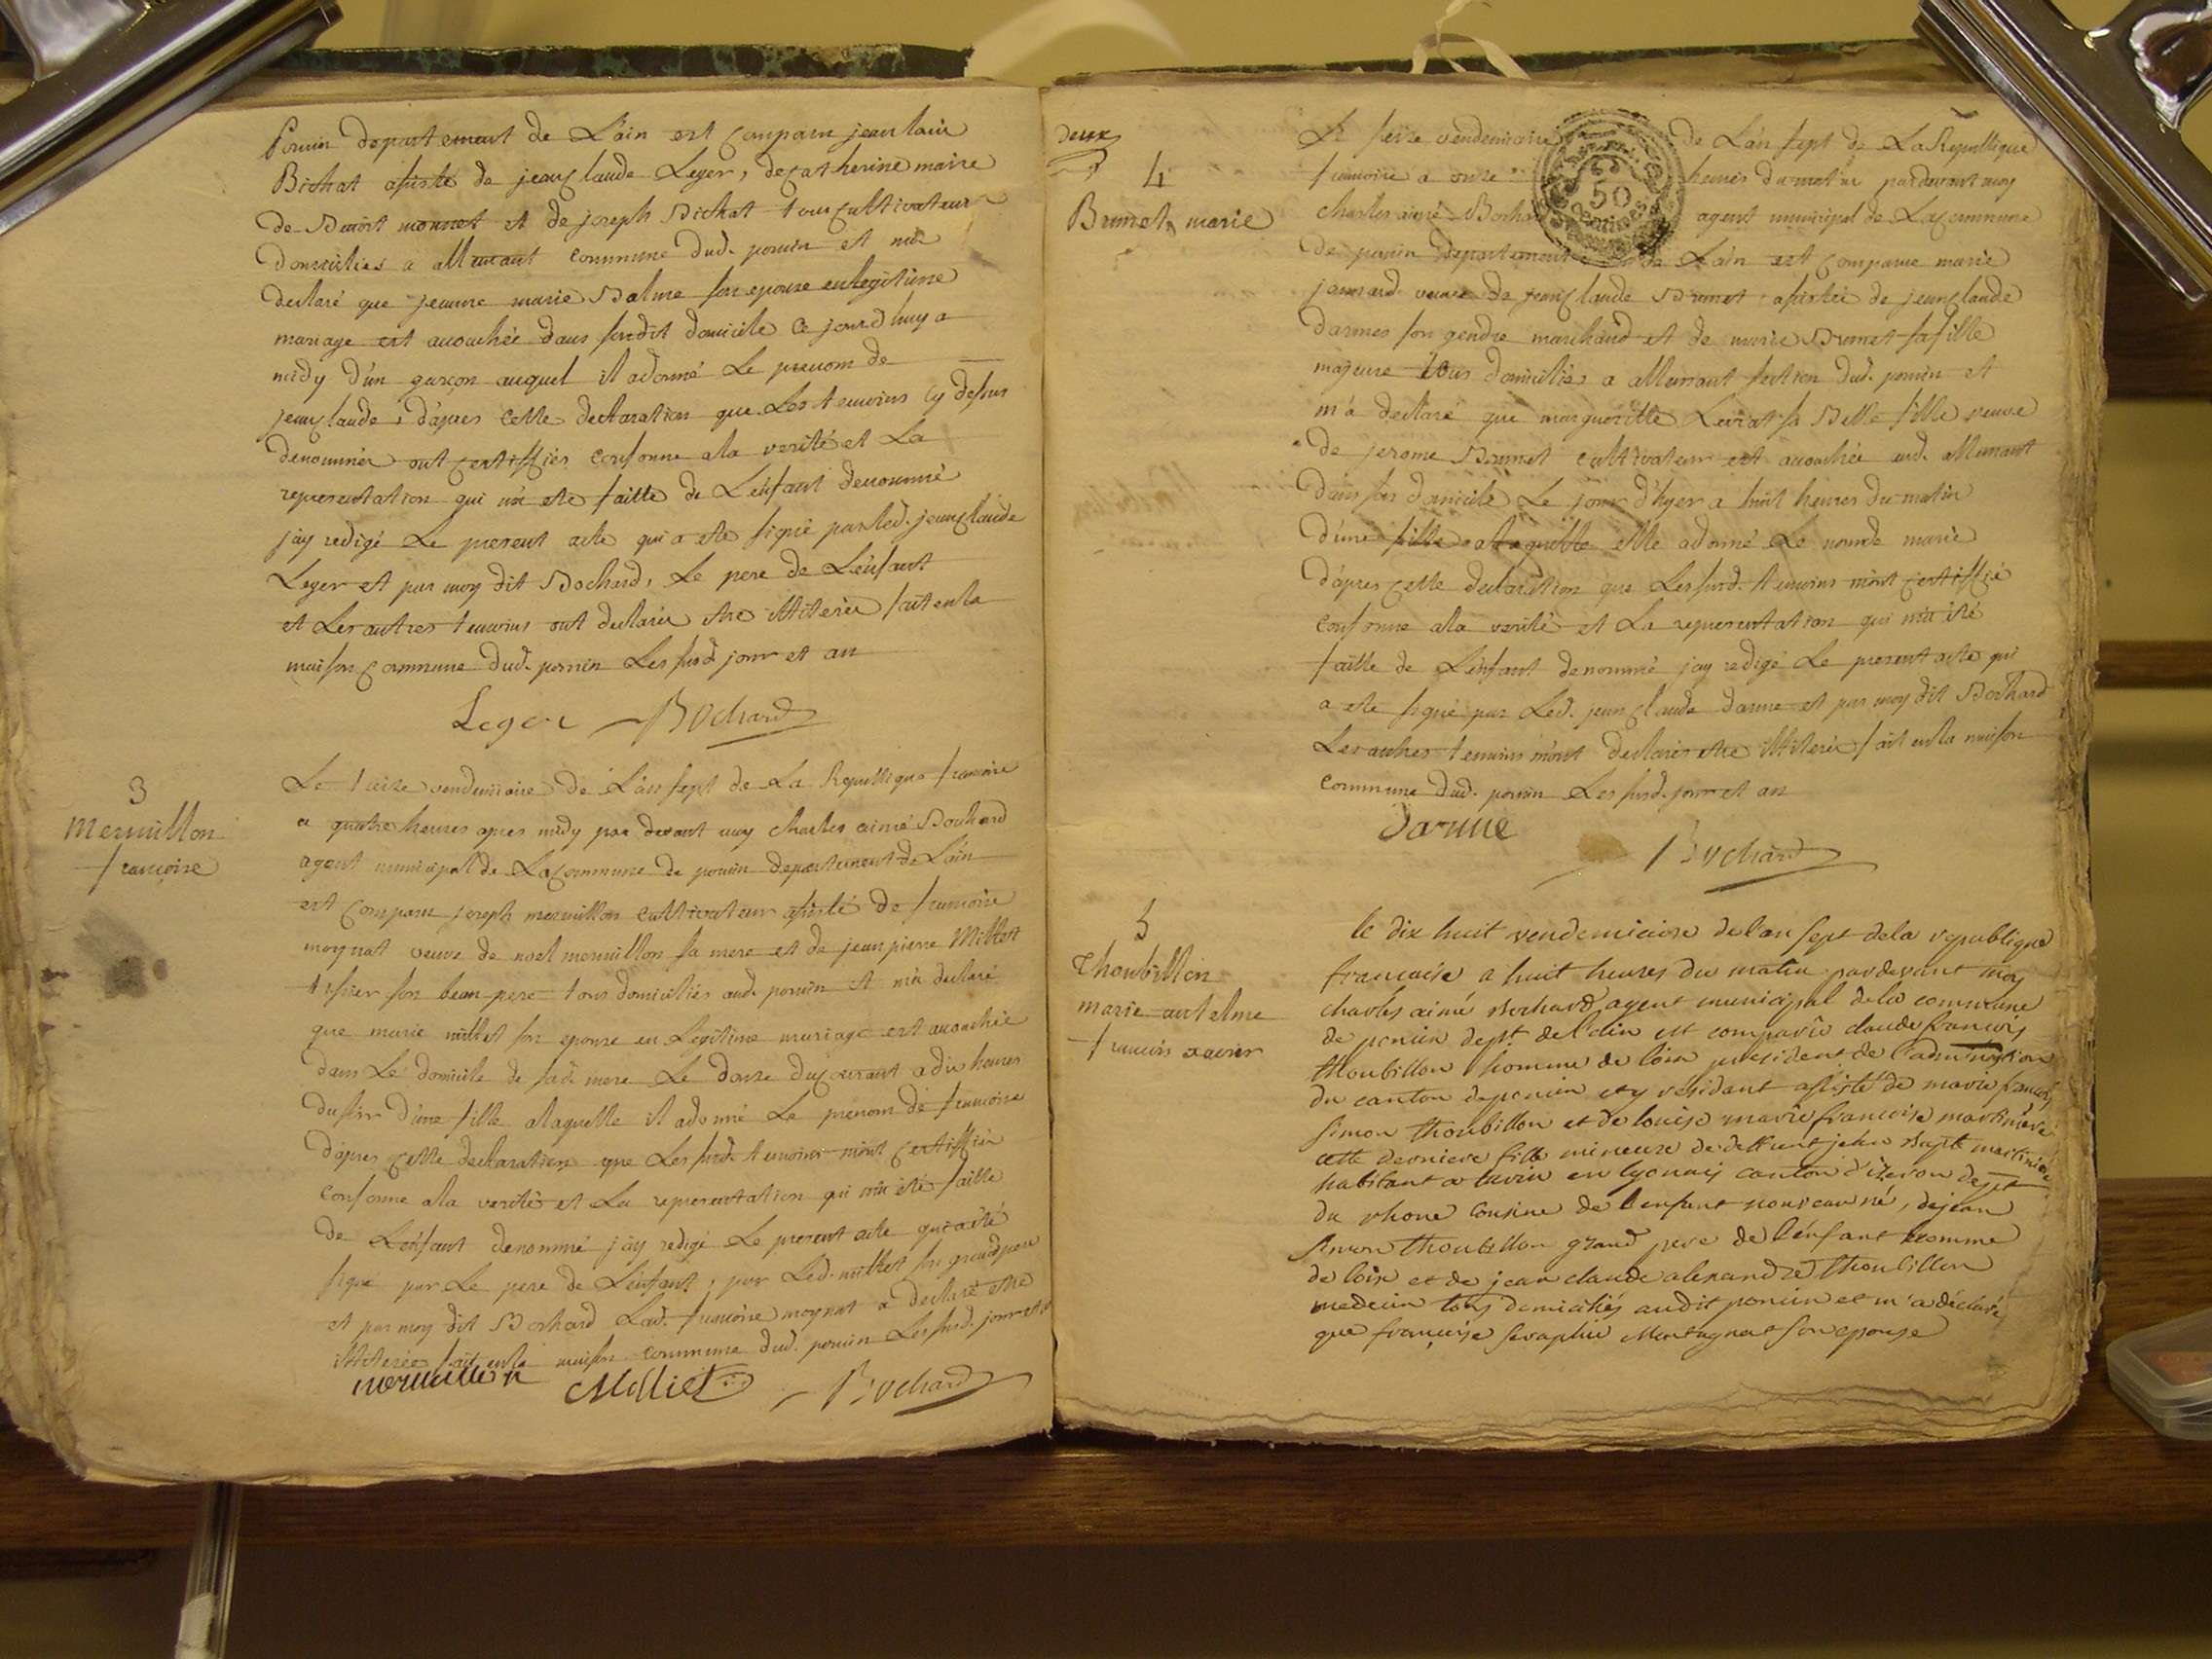 Poncin departement de L'ain est Comparu jean louis
Bichat assisté de jean Claude Leger, de Catherine maire
de Benoit monnet et de joseph Bichat tous Cultivateurs
domiciliés a allemant commune dud. poncin et m'a
declaré que jeanne marie Balme son epouse en legitime
mariage est accouchée dans sondit domicile Ce jourd'huy a
midy d'un garçon auquel il a donné Le prenom de
jean Claude, d'apres Cette declaration que Les temoins Cy dessus
denommés ont Certiffiés conforme a la verité et La
representation qui m'a eté faitte de L'enfant denommé
j'ay redigé Le present acte qui a eté signé par led. jean Claude
Leger et par moy dit Bochard, Le pere de L'enfant
et Les autres temoins ont declarés etre illiterés fait en la
maison Commune dud. poncin Les susd. jour et an
Leger Bochard
3
Mermillon
francoise
Le treize vendemiaire de L'an sept de La Republique francoise
a quatre heures apres midy par devant moy Charles aimé Bochard
agent municipal de La Commune de poncin departement de L'ain
est Comparu joseph mermillon cultivateur assisté de francoise
moynat veuve de noel mermillon sa mere et de jean pierre Milliet
son beau pere tous domiciliés aud. poncin et m'a declaré
que marie milliet son epouse en Legitime mariage est accouchée
dans Le domicile de sad. mere Le douze du Courant a dix heures
du soir d'une fille a laquelle il a donné Le prenom de francoise
d'apres Cette declaration que Les susd. temoins m'ont Certiffiés
conforme a la verité et La representation qui m'a eté faitte
de L'enfant denommé j'ay redigé Le present acte qui a eté
signé par Le pere de L'enfant, par Led. milliet son grand pere
et par moy dit Bochard Lad. francoise moynat a declaré etre
illiterée fait en la maison commune dud. poncin Les susd. jour et an
mermillon Milliet Bochard
deux
4
Brunet marie
Le seize vendemiaire de L'an sept de La Republique
francoise a onze heures du matin par devant moy
charles aimé Bochard agent municipal de La Commune
de poncin departement de L'ain est Comparue marie
veuve de jean Claude Brunet assistée de jean Claude
darmes son gendre marchand et de marie Brunet sa fille
majeure tous domiciliés a allemant section dud. poncin et
m'a declaré que margueritte Levrat sa Belle fille veuve
de jerome Brunet cultivateur est accouchée aud. allemant
dans son domicile Le jour d'hyer a huit heures du matin
d'une fille a laquelle elle a donné Le nom de marie
d'apres Cette declaration que Les susd. temoins m'ont Certiffié
conforme a la verité et La representation qui m'a eté
faitte de L'enfant denommé j'ay redigé Le present acte qui
a eté signé par Led. jean Claude darme et par moy dit Bochard
Les autres temoins m'ont declarés etre illiterés fait en la maison
commune dud. poncin Les susd. jour et an
Darme
Bochard
5
Thoubillon
marie antelme
francois xavier
le dix huit vendemiaire de l'an sept de la republique
francaise a huit heures du matin pardevant moy
charles aimé Bochard agent municipal de la commune
de poncin dept. de l'ain est comparû claude francois
thoubillon homme de loix president de l'adm'nistion
du canton de poncin et y residant assisté de marie francois
simon thoubillon et de louise marie francoise martiniere
cette derniere fille mineure de deffunt jean Bapte martiniere
habitant a en lyonnais canton d'izeron dept
du rhone cousine de l'enfant nouveau né, de jean
simon thoubillon grand pere de l'enfant homme
de loix et de jean claude alexandre thoubillon
medecin tous domiciliés audit poncin et m'a déclaré
que françoise seraphie Montagnat son epouse
50
centimes